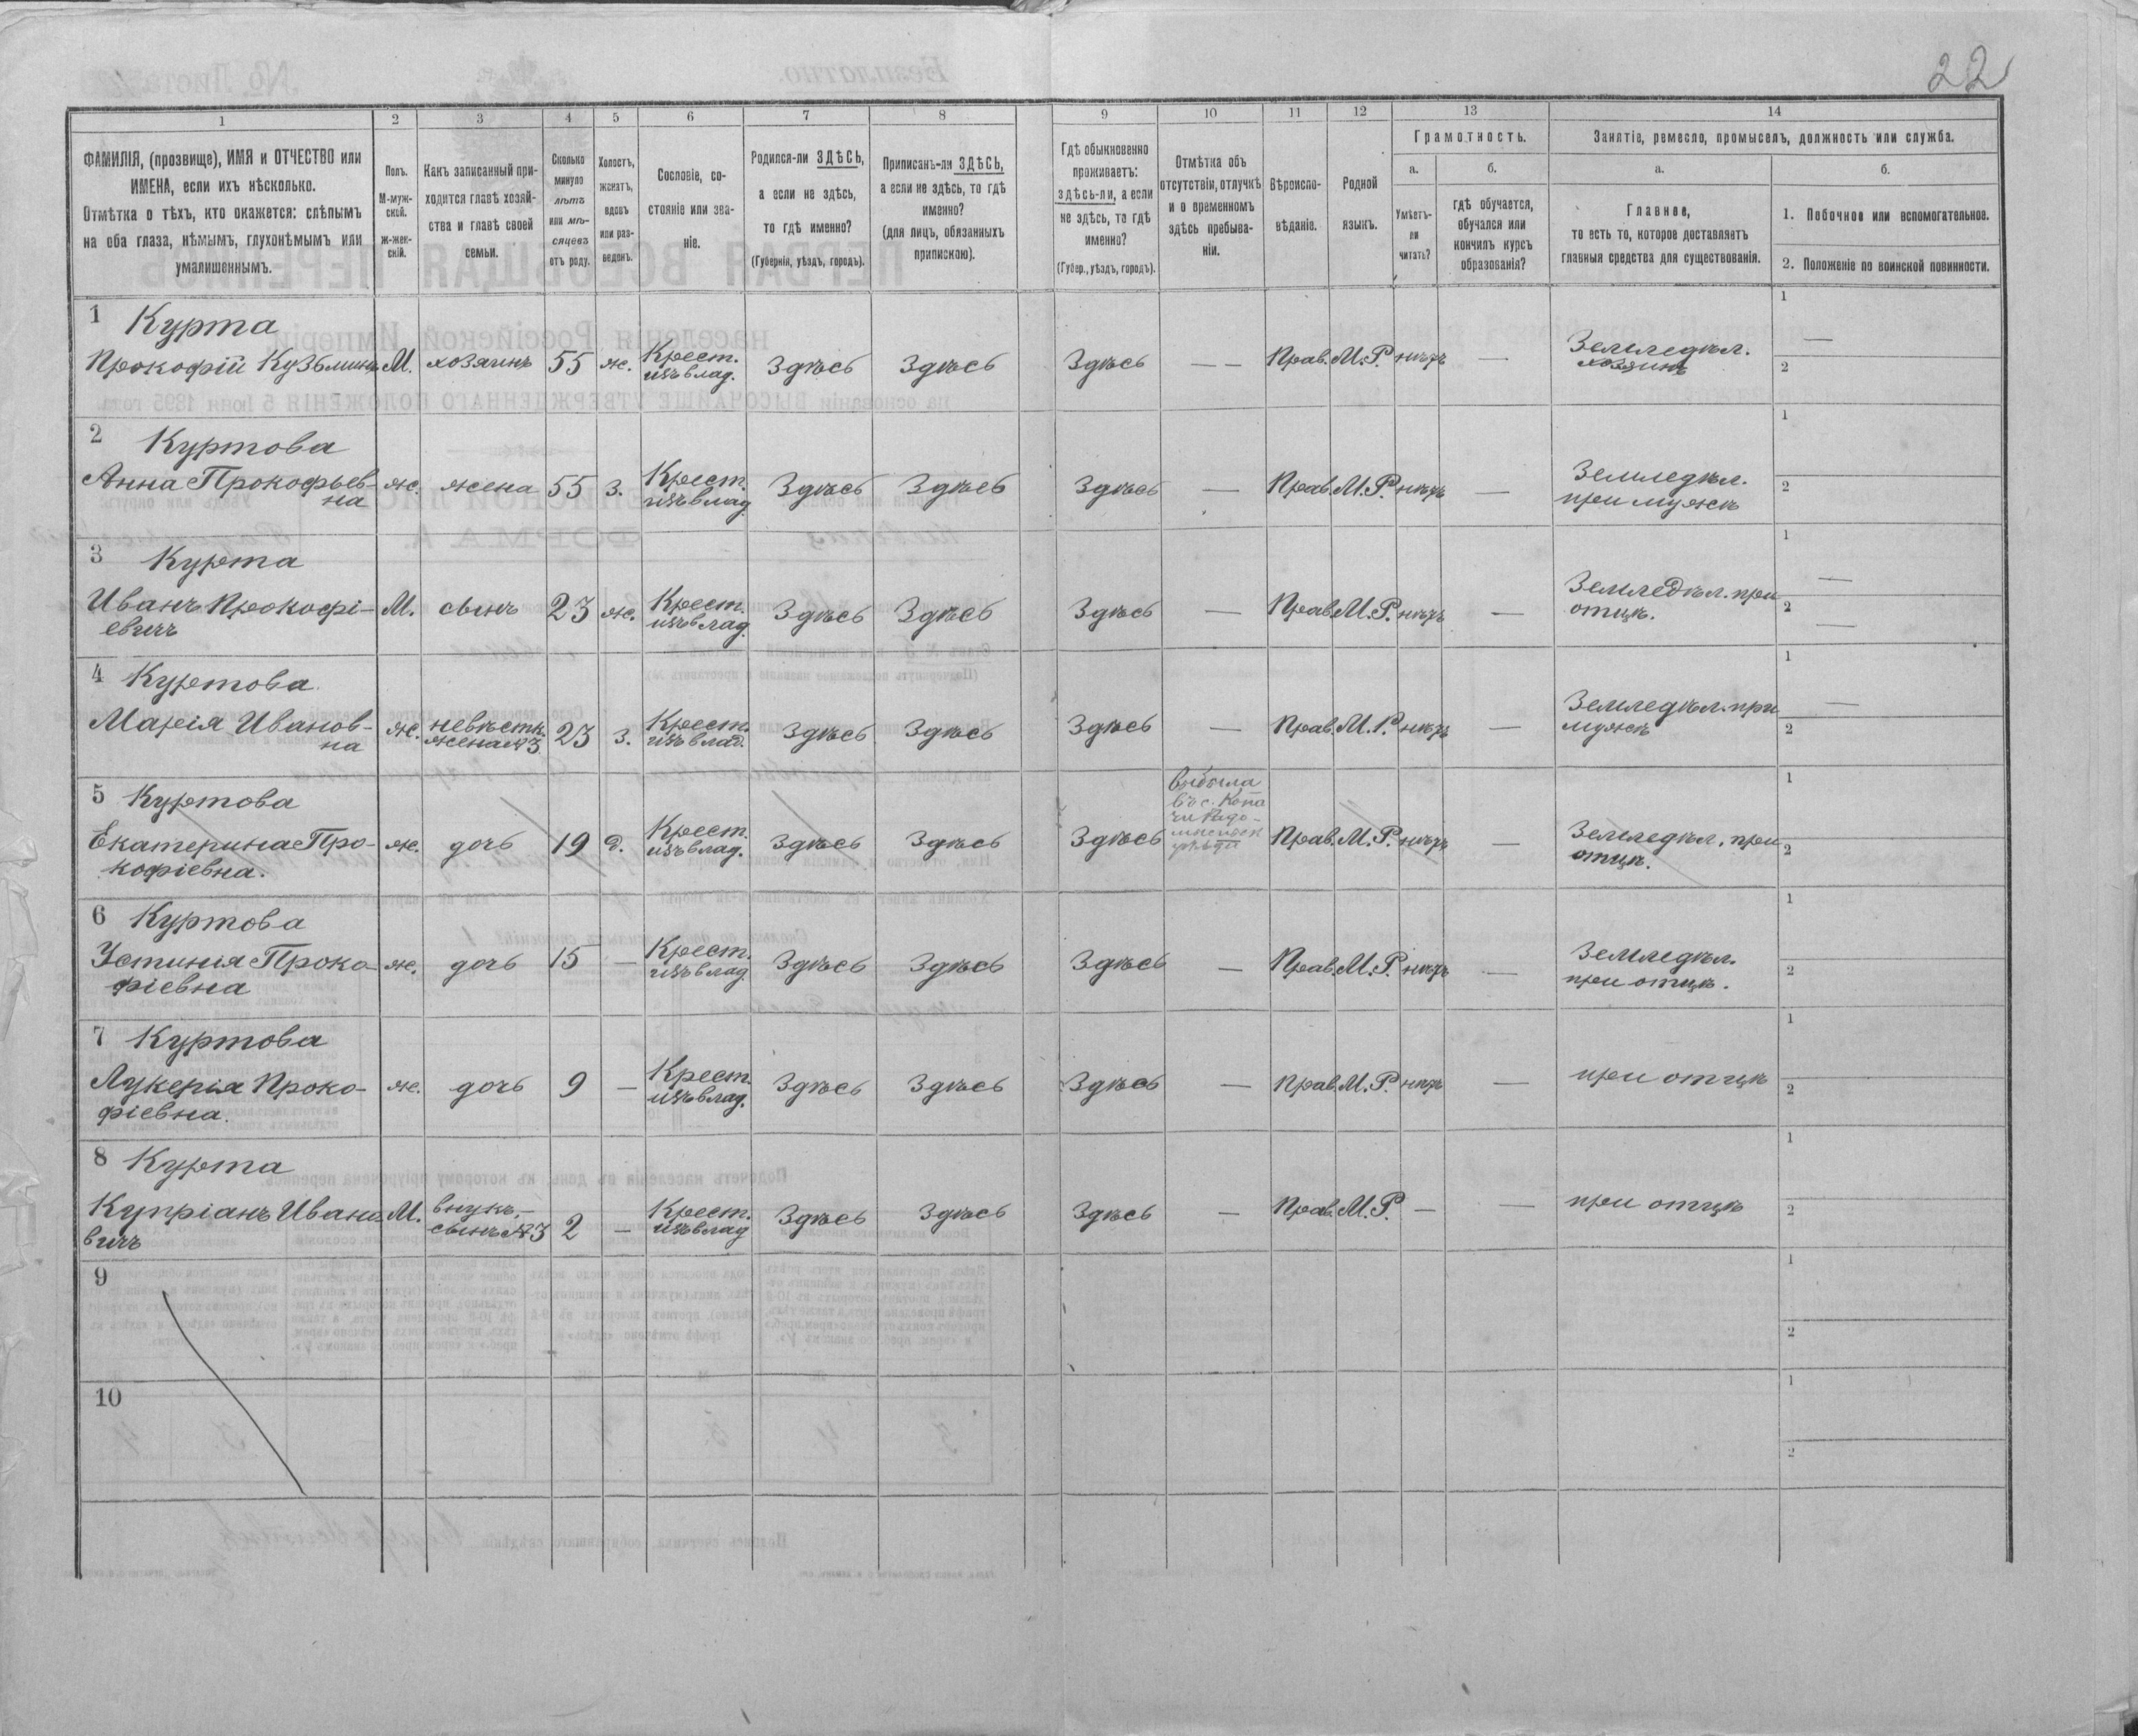 22
1 2 3 4 5 6 7 8 9 10 11 12 13 14
ФАМИЛІЯ, (прозвище), ИМЯ и ОТЧЕСТВО или
ИМЕНА, если ихъ нѣсколько.
Отмѣтка о тѣхъ, кто окажется: слѣпымъ
на оба глаза, нѣмымъ, глухонѣмымъ или
умалишеннымъ.
Полъ.
М-муж-
ской.
Ж-жен-
скій.
Какъ записанный при-
ходится главѣ хозяй-
ства и главѣ своей
семьи.
Сколько
минуло
лѣтъ
или мѣ-
сяцевъ
отъ роду.
Холостъ,
женатъ,
вдовъ
или раз-
веденъ.
Сословіе, со-
стояніе или зва-
ніе.
Родился-ли ЗДѢСЬ,
а если не здѣсь,
то гдѣ именно?
(Губернія, уѣздъ, городъ).
Приписанъ-ли ЗДѢСЬ,
а если не здѣсь, то гдѣ
именно?
(для лицъ, обязанныхъ
припискою).
Гдѣ обыкновенно
проживаетъ:
здѣсь-ли, а если
не здѣсь, то гдѣ
именно?
(Губер., уѣздъ, городъ).
Отмѣтка объ
отсутствіи, отлучкѣ
и о временномъ
здѣсь пребыва-
ніи.
Вѣроиспо-
вѣданіе.
Родной
языкъ.
Грамотность.
а.
Умѣетъ-
ли
читать?
б.
гдѣ обучается,
обучался или
кончилъ курсъ
образованія?
Занятіе, ремесло, промыселъ, должность или служба.
а.
Главное,
то есть то, которое доставляетъ
главныя средства для существованія.
б.
1. Побочное или вспомогательное.
2. Положеніе по воинской повинности.
1 Курта
Прокофій Кузьминъ М. хозяинъ 55 ж. Крест. изъ влад. Здѣсь Здѣсь Здѣсь — — Прав. М.Р. нѣтъ — Земледѣл. 1 —
хозяинъ 2
2 Куртова 1
Анна Прокофьев- ж. жена 55 З. Крест. изъ влад. Здѣсь Здѣсь Здѣсь — Прав. М.Р. нѣтъ — Земледѣл.
на при мужѣ 2
3 Курта 1 —
Иванъ Прокофі- М. сынъ 23 ж. Крест. изъ влад. Здѣсь Здѣсь Здѣсь — Прав. М.Р. нѣтъ — Земледѣл. при
евичъ отцѣ. 2 —
4 Куртова 1 —
Марія Иванов- ж. невѣстк. 23 З. Крест. изъ влад. Здѣсь Здѣсь Здѣсь — Прав. М.Р. нѣтъ — Земледѣл. при
на жена №3. мужѣ 2
5 Куртова выбыла 1
въ с. Копа
чи Радо-
мысльск
уѣзда
Екатерина Про- ж. дочь 19 д. Крест. изъ влад. Здѣсь Здѣсь Здѣсь Прав. М.Р. нѣтъ — Земледѣл. при
кофіевна. отцѣ. 2
6 Куртова 1
Устинія Проко- ж. дочь 15 — Крест. изъ влад. Здѣсь Здѣсь Здѣсь — Прав. М.Р. нѣтъ — Земледѣл.
фіевна при отцѣ. 2
7 Куртова 1
Лукерія Проко- ж. дочь 9 — Крест. изъ влад. Здѣсь Здѣсь Здѣсь — Прав. М.Р. нѣтъ — при отцѣ
фіевна. 2
8 Курта 1
Купріанъ Ивано М. внукъ,- 2 — Крест. изъ влад Здѣсь Здѣсь Здѣсь — Прав. М.Р. — — при отцѣ
вичъ сынъ №3 2
9 1
2
10 1
2